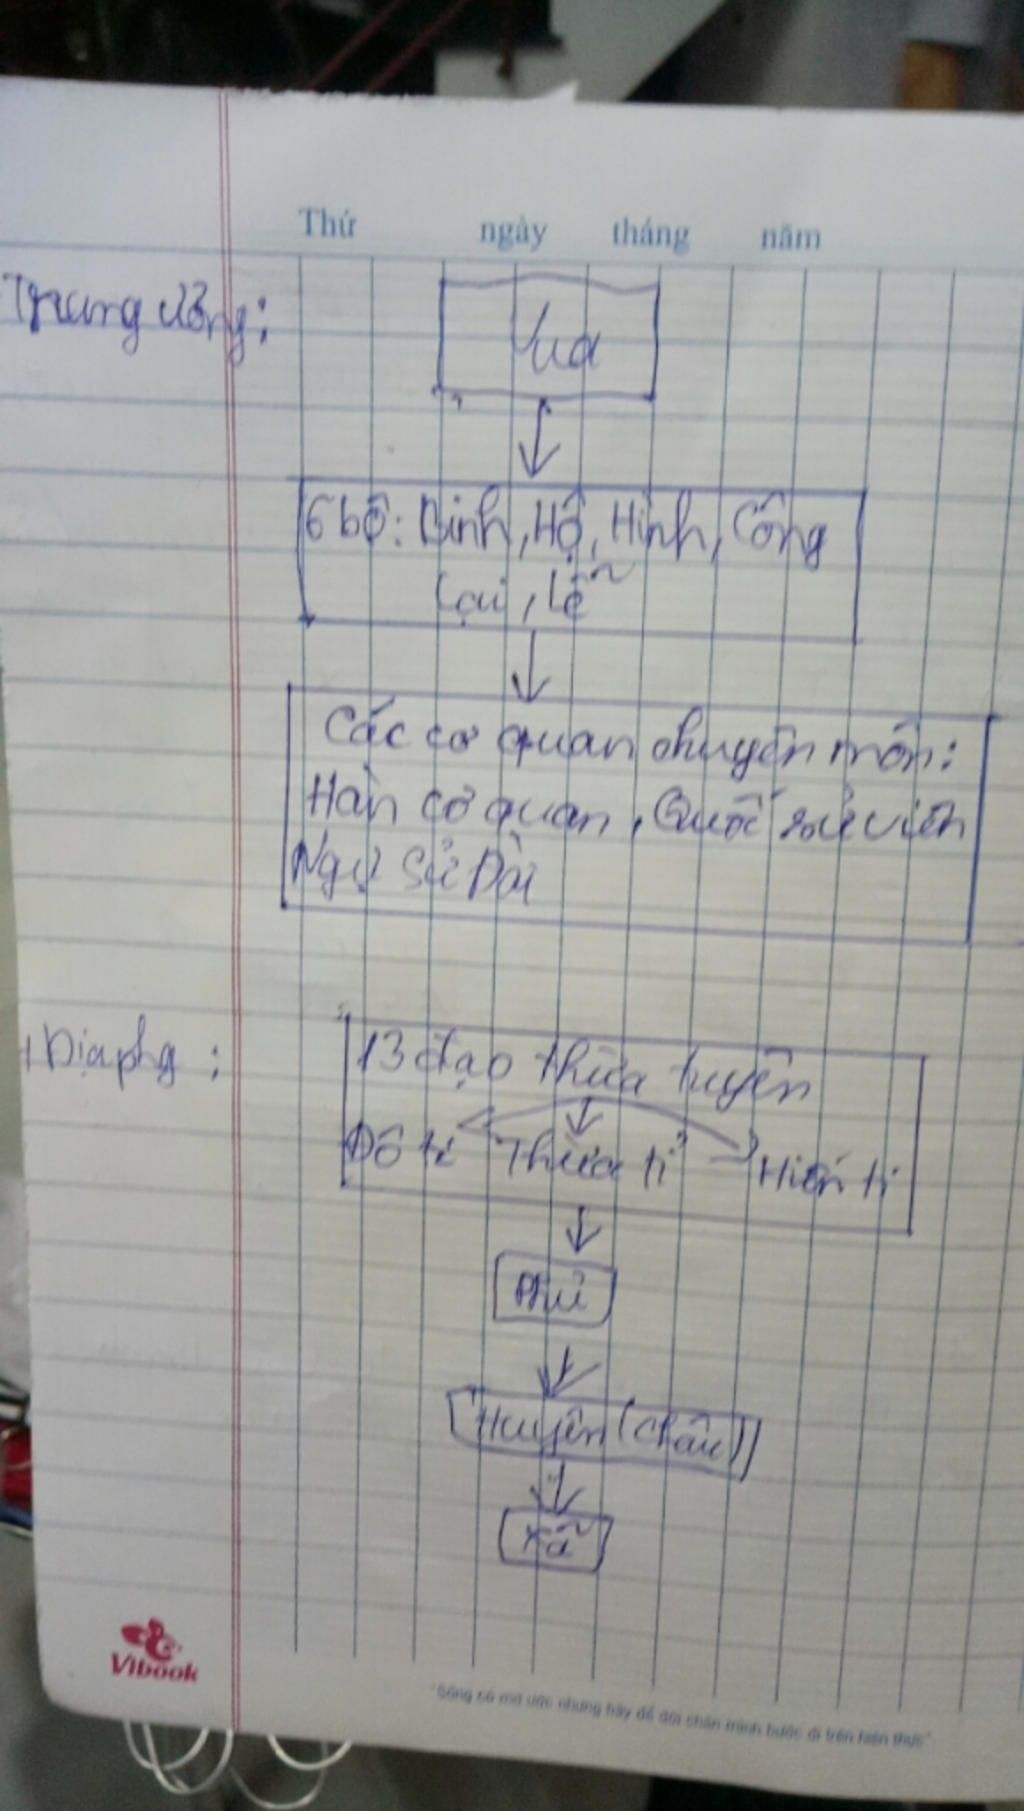 Thứ ngày tháng năm
Trung ương:
Vua
6 bộ: Binh, Hộ, Hình, Công
Lại, Lễ
Các cơ quan chuyên môn:
Hàn cơ quan, Quốc sử viện
Ngự Sử Đài
Địa phg:
13 đạo thừa tuyên
Đô ti Thừa ti Hiến ti
Phủ
Huyện (Châu)
Xã
Vibook
"Sống có mơ ước nhưng hãy để đôi chân mình bước đi trên hiện thực"